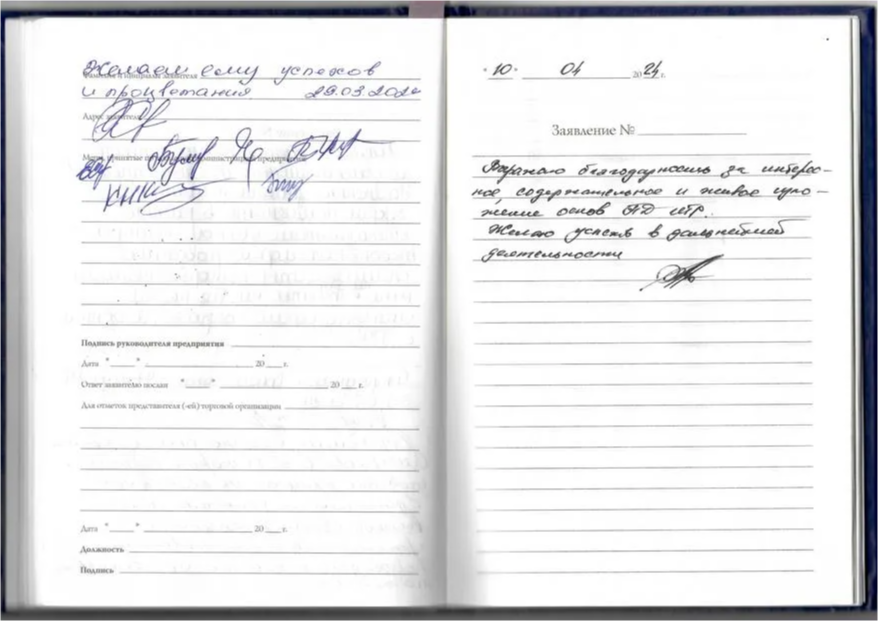 Желаем ему успехов
Фамилия и инициалы заявителя
и процветания 29.03.2024
Адрес заявителя
Меры, принятые администрацией предприятия
Подпись руководителя предприятия
Дата "___" ___ 20___г.
Ответ заявителю послан "___" ___ 20___г.
Для отметок представителя (-ей) торговой организации
Дата "___" ___ 20___г.
Должность
Подпись
"10" 04 2024 г.
Заявление №
Выражаю благодарность за интерес-
ное, содержательное и живое изло-
жение основ
Желаю успехов в дальнейшей
деятельности